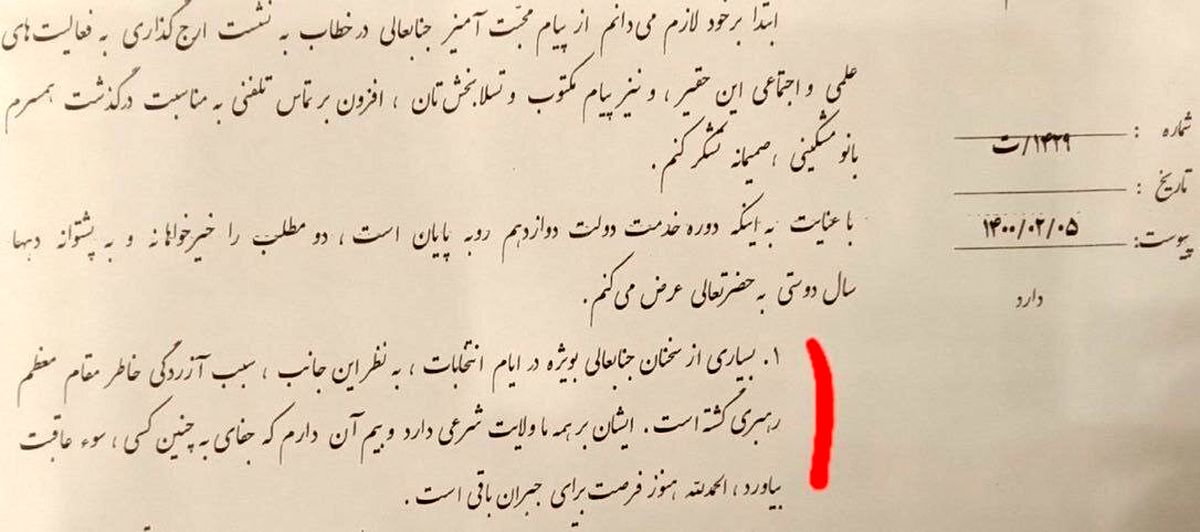 ابتدا برخود لازم می‌دانم از پیام محبّت آمیز جنابعالی درخطاب به نشست ارج‌گذاری به فعالیت‌های
علمی و اجتماعی این حقیر، و نیز پیام مکتوب و تسلابخش‌تان ، افزون بر تماس تلفنی به مناسبت درگذشت همسرم
بانو مشکینی ، صمیمانه تشکر کنم .
با عنایت به اینکه دوره خدمت دولت دوازدهم روبه پایان است ، دو مطلب را خیرخواهانه و به پشتوانه دهها
سال دوستی به حضرتعالی عرض می‌کنم .
۱. بسیاری از سخنان جنابعالی بویژه در ایام انتخابات ، به نظر این جانب ، سبب آزردگی خاطر مقام معظم
رهبری گشته است . ایشان بر همه ما ولایت شرعی دارد و بیم آن دارم که جفای به چنین کسی ، سوء عاقبت
بیاورد ، الحمدلله هنوز فرصت برای جبران باقی است .
شماره :
۱۴۲۹/ت
تاریخ :
۱۴۰۰/۰۲/۰۵
پیوست:
دارد